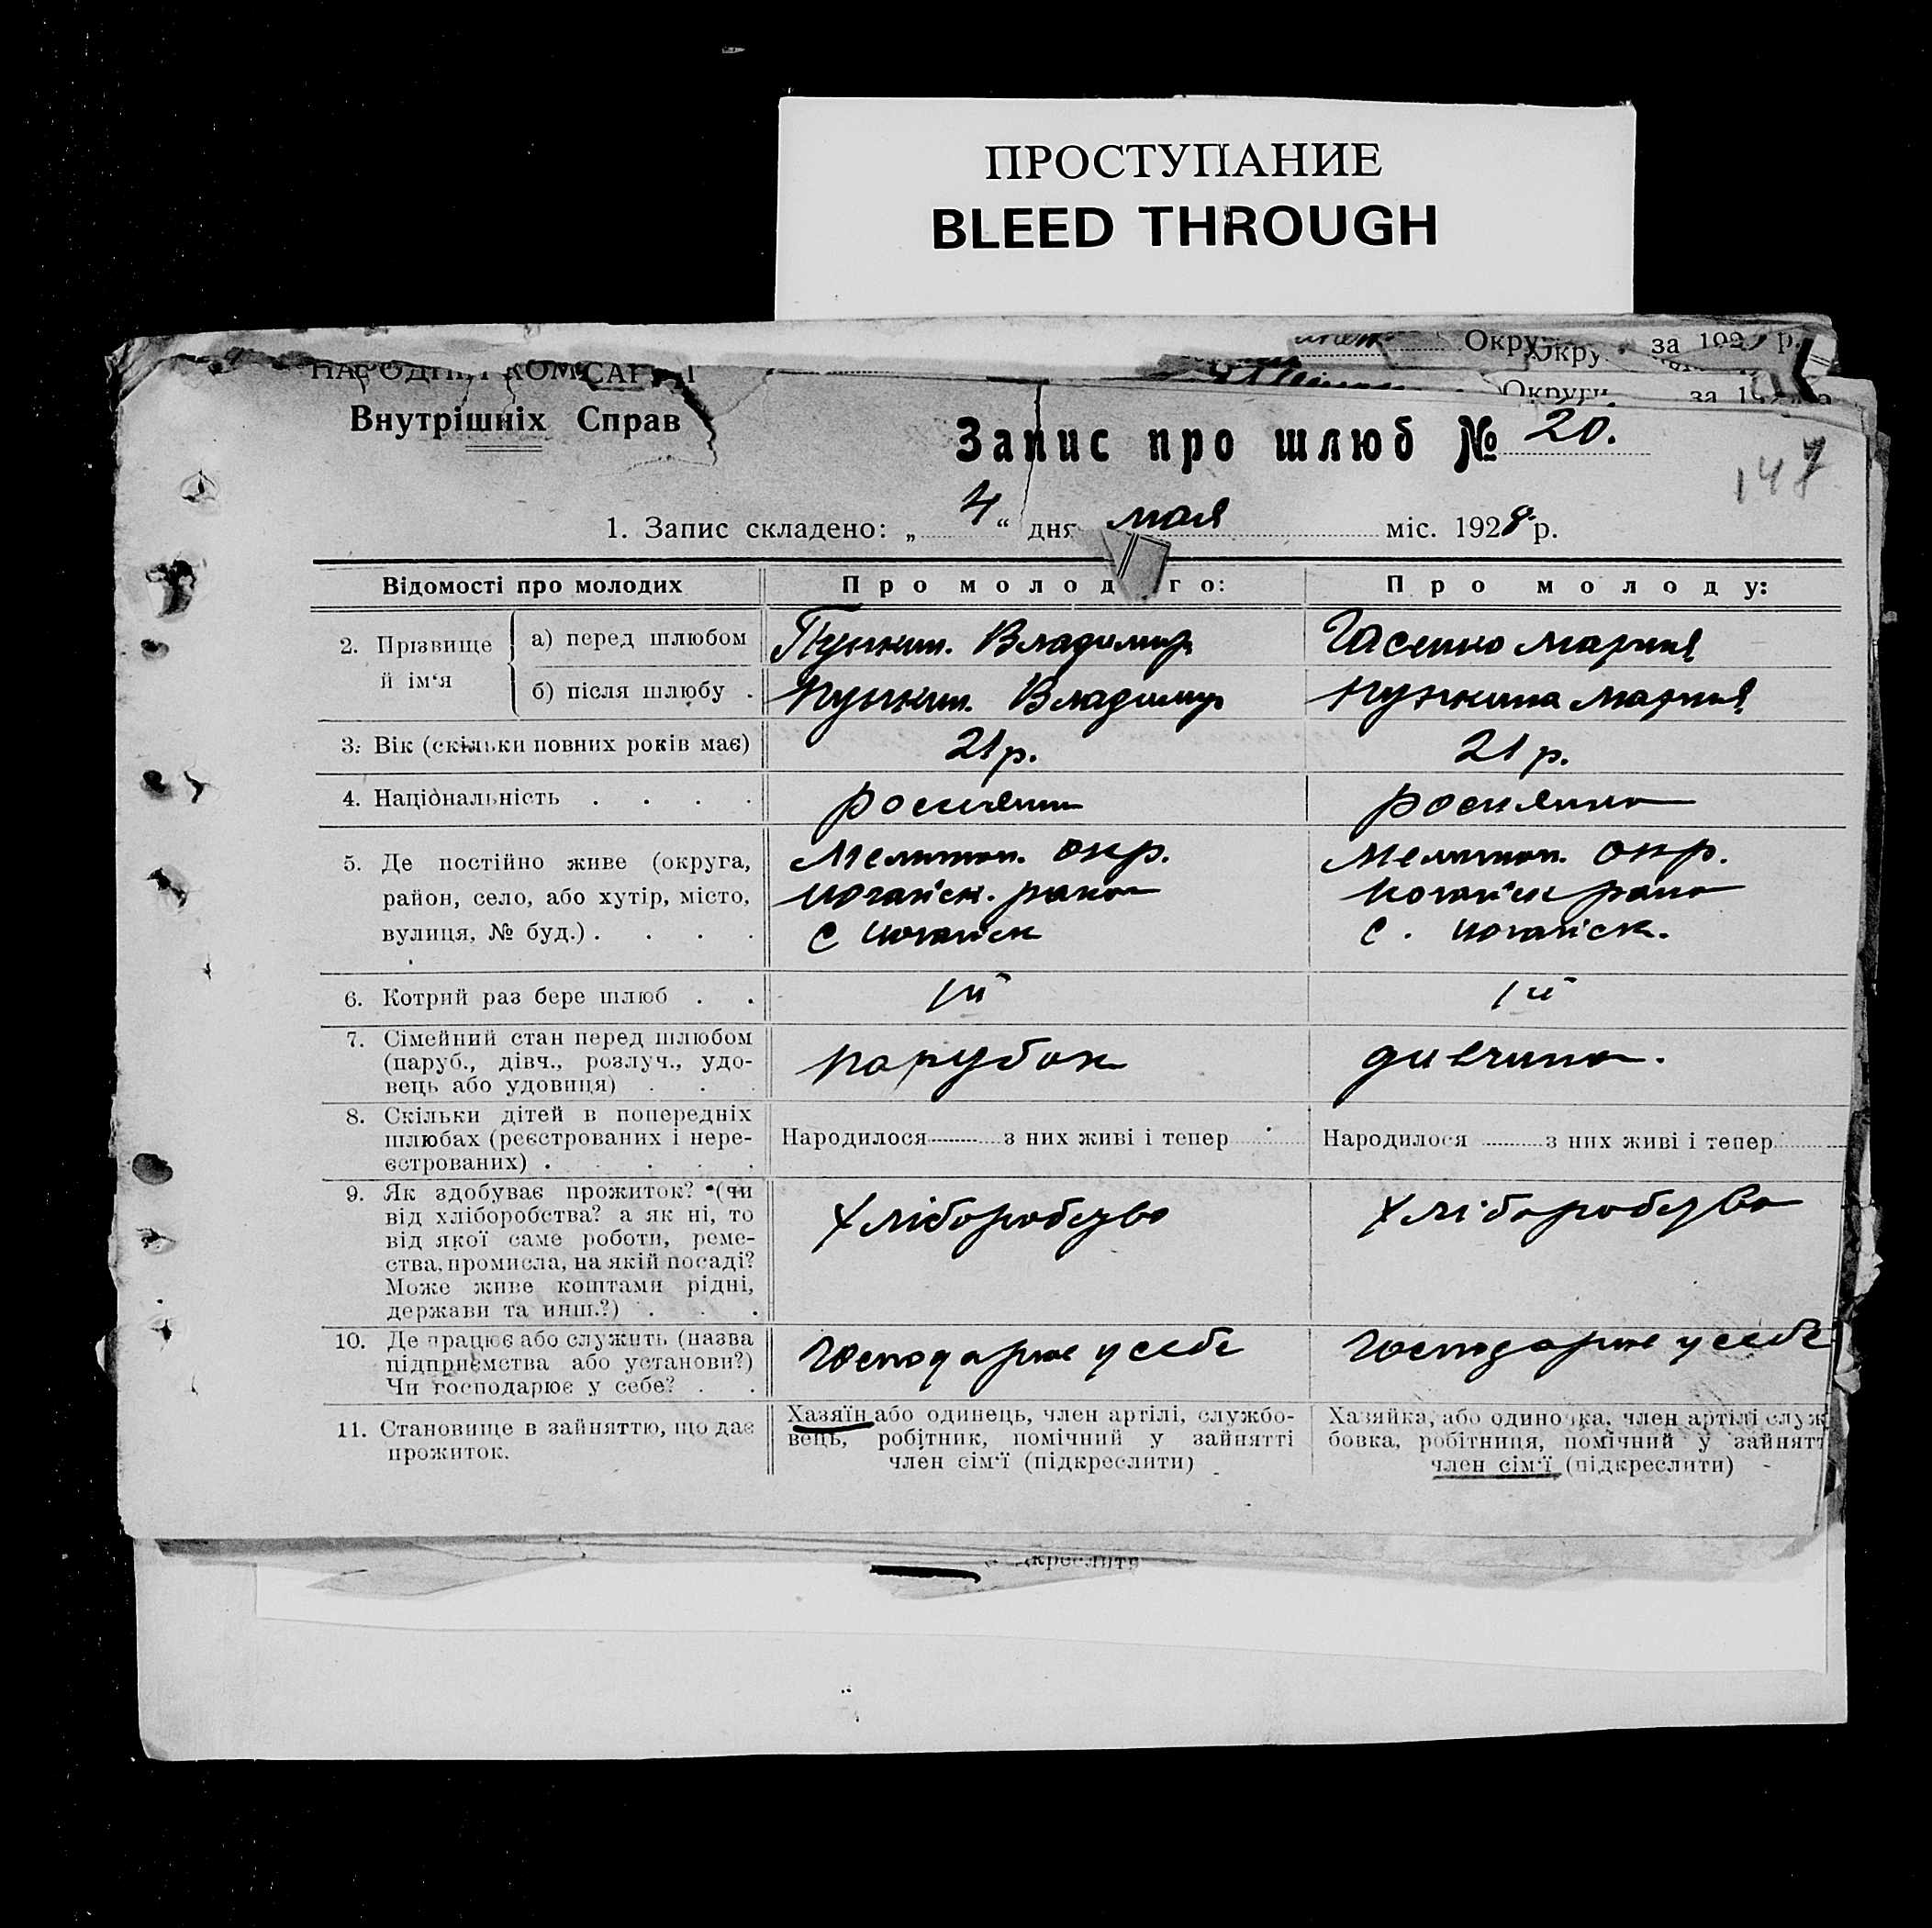 ПРОСТУПАНИЕ
BLEED THROUGH
Окру за 192 р.
Округи за
НАРОДНІЙ КОМІСАРІЯТ
Внутрішніх Справ
Запис про шлюб № 20.
147
1. Запис складено: „ 4 “ дня мая міс. 1928 р.
Відомості про молодих Про молодого: Про молоду:
2. Прізвище й ім‘я
а) перед шлюбом Владимир Мария
б) після шлюбу . Владимир Мария
3. Вік (скільки повних років має) 21 р. 21 р.
4. Національність . . . . росиянин росиянка
5. Де постійно живе (округа, Мелитоп. окр. Мелитоп. окр.
район, село, або хутір, місто, ногайск. ногайск
вулиця, № буд.) . . . . с ногайск с. ногайск.
6. Котрий раз бере шлюб . . 1й 1й
7. Сімейний стан перед шлюбом
(паруб., дівч., розлуч., удо-
вець або удовиця) . . . парубок дивчина.
8. Скільки дітей в попередніх
шлюбах (реєстрованих і нере- Народилося з них живі і тепер Народилося з них живі і тепер
єстрованих) . . . . .
9. Як здобуває прожиток? (чи
від хліборобства? а як ні, то хліборобство хліборобство
від якої саме роботи, реме-
ства, промисла, на якій посаді?
Може живе коштами рідні,
держави та инш.?) . . .
10. Де працює або служить (назва
підприємства або установи?) господарює у себе господарює у себе
Чи господарює у себе? . .
11. Становище в зайняттю, що дає
прожиток.
Хазяїн або одинець, член артілі, службо-
вець, робітник, помічний у зайнятті
член сім‘ї (підкреслити)
Хазяйка, або одиночка, член артілі служ
бовка, робітниця, помічний у зайнятт
член сім‘ї (підкреслити)